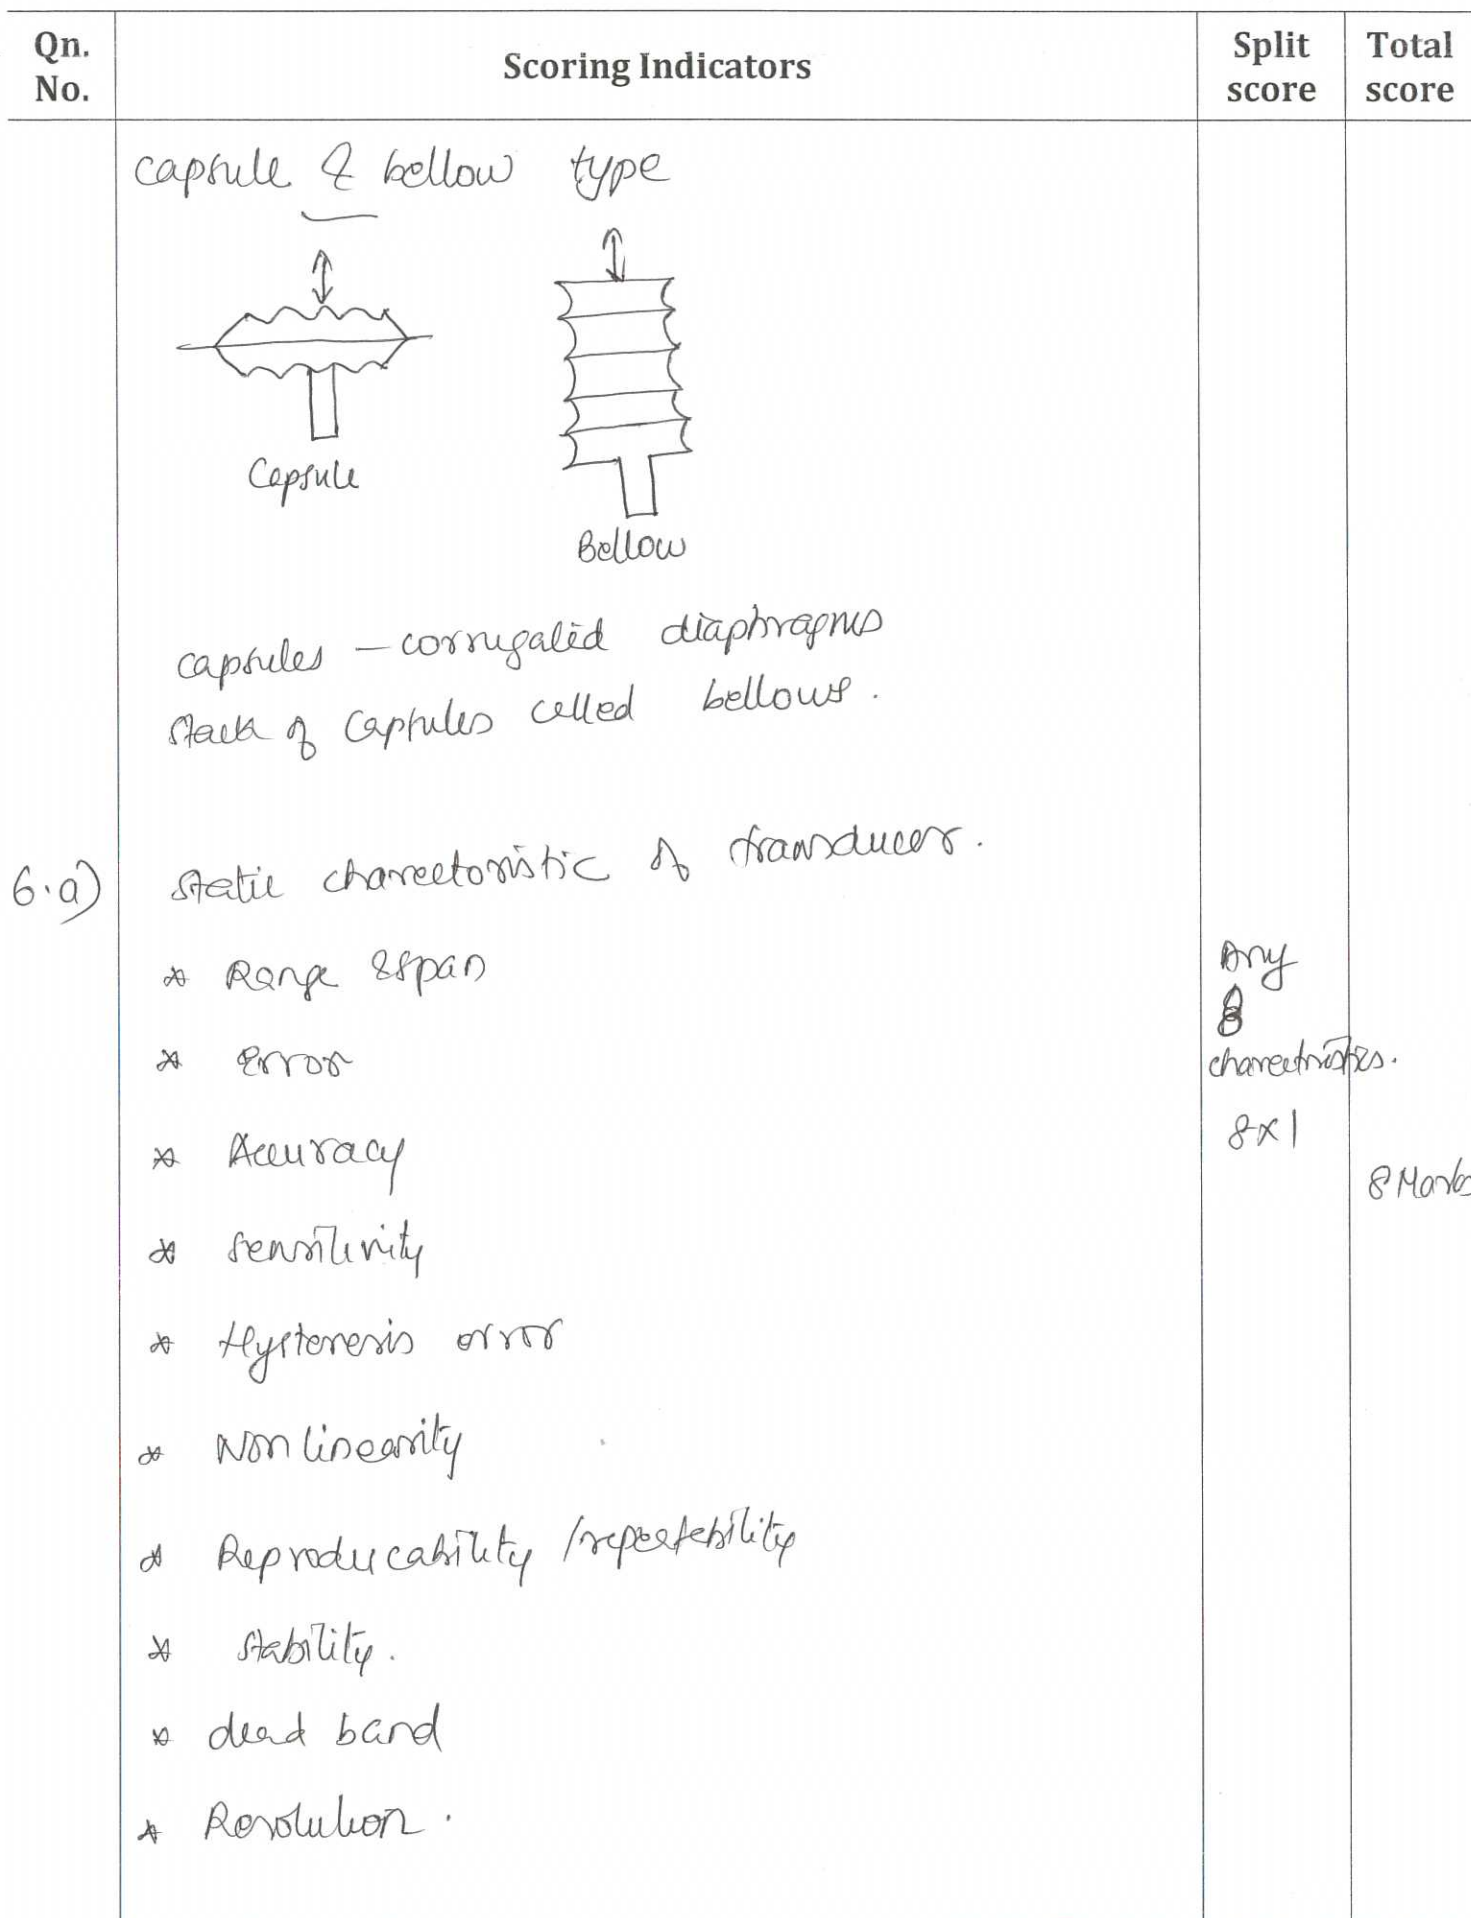 Qn. No.
Scoring Indicators
Split score
Total score
capsule & bellow type
Capsule
Bellow
capsules - corrugated diaphragms
stack of capsules called bellows.
6.a)
static charecteristic of transducer.
* Range & span
Any
8
charectristics.
* Error
8x1
* Accuracy
8 Marks
* sensitivity
* Hysteresis error
* Non linearity
* Reproducability / repeatebility
* stability.
* dead band
* Resolution.